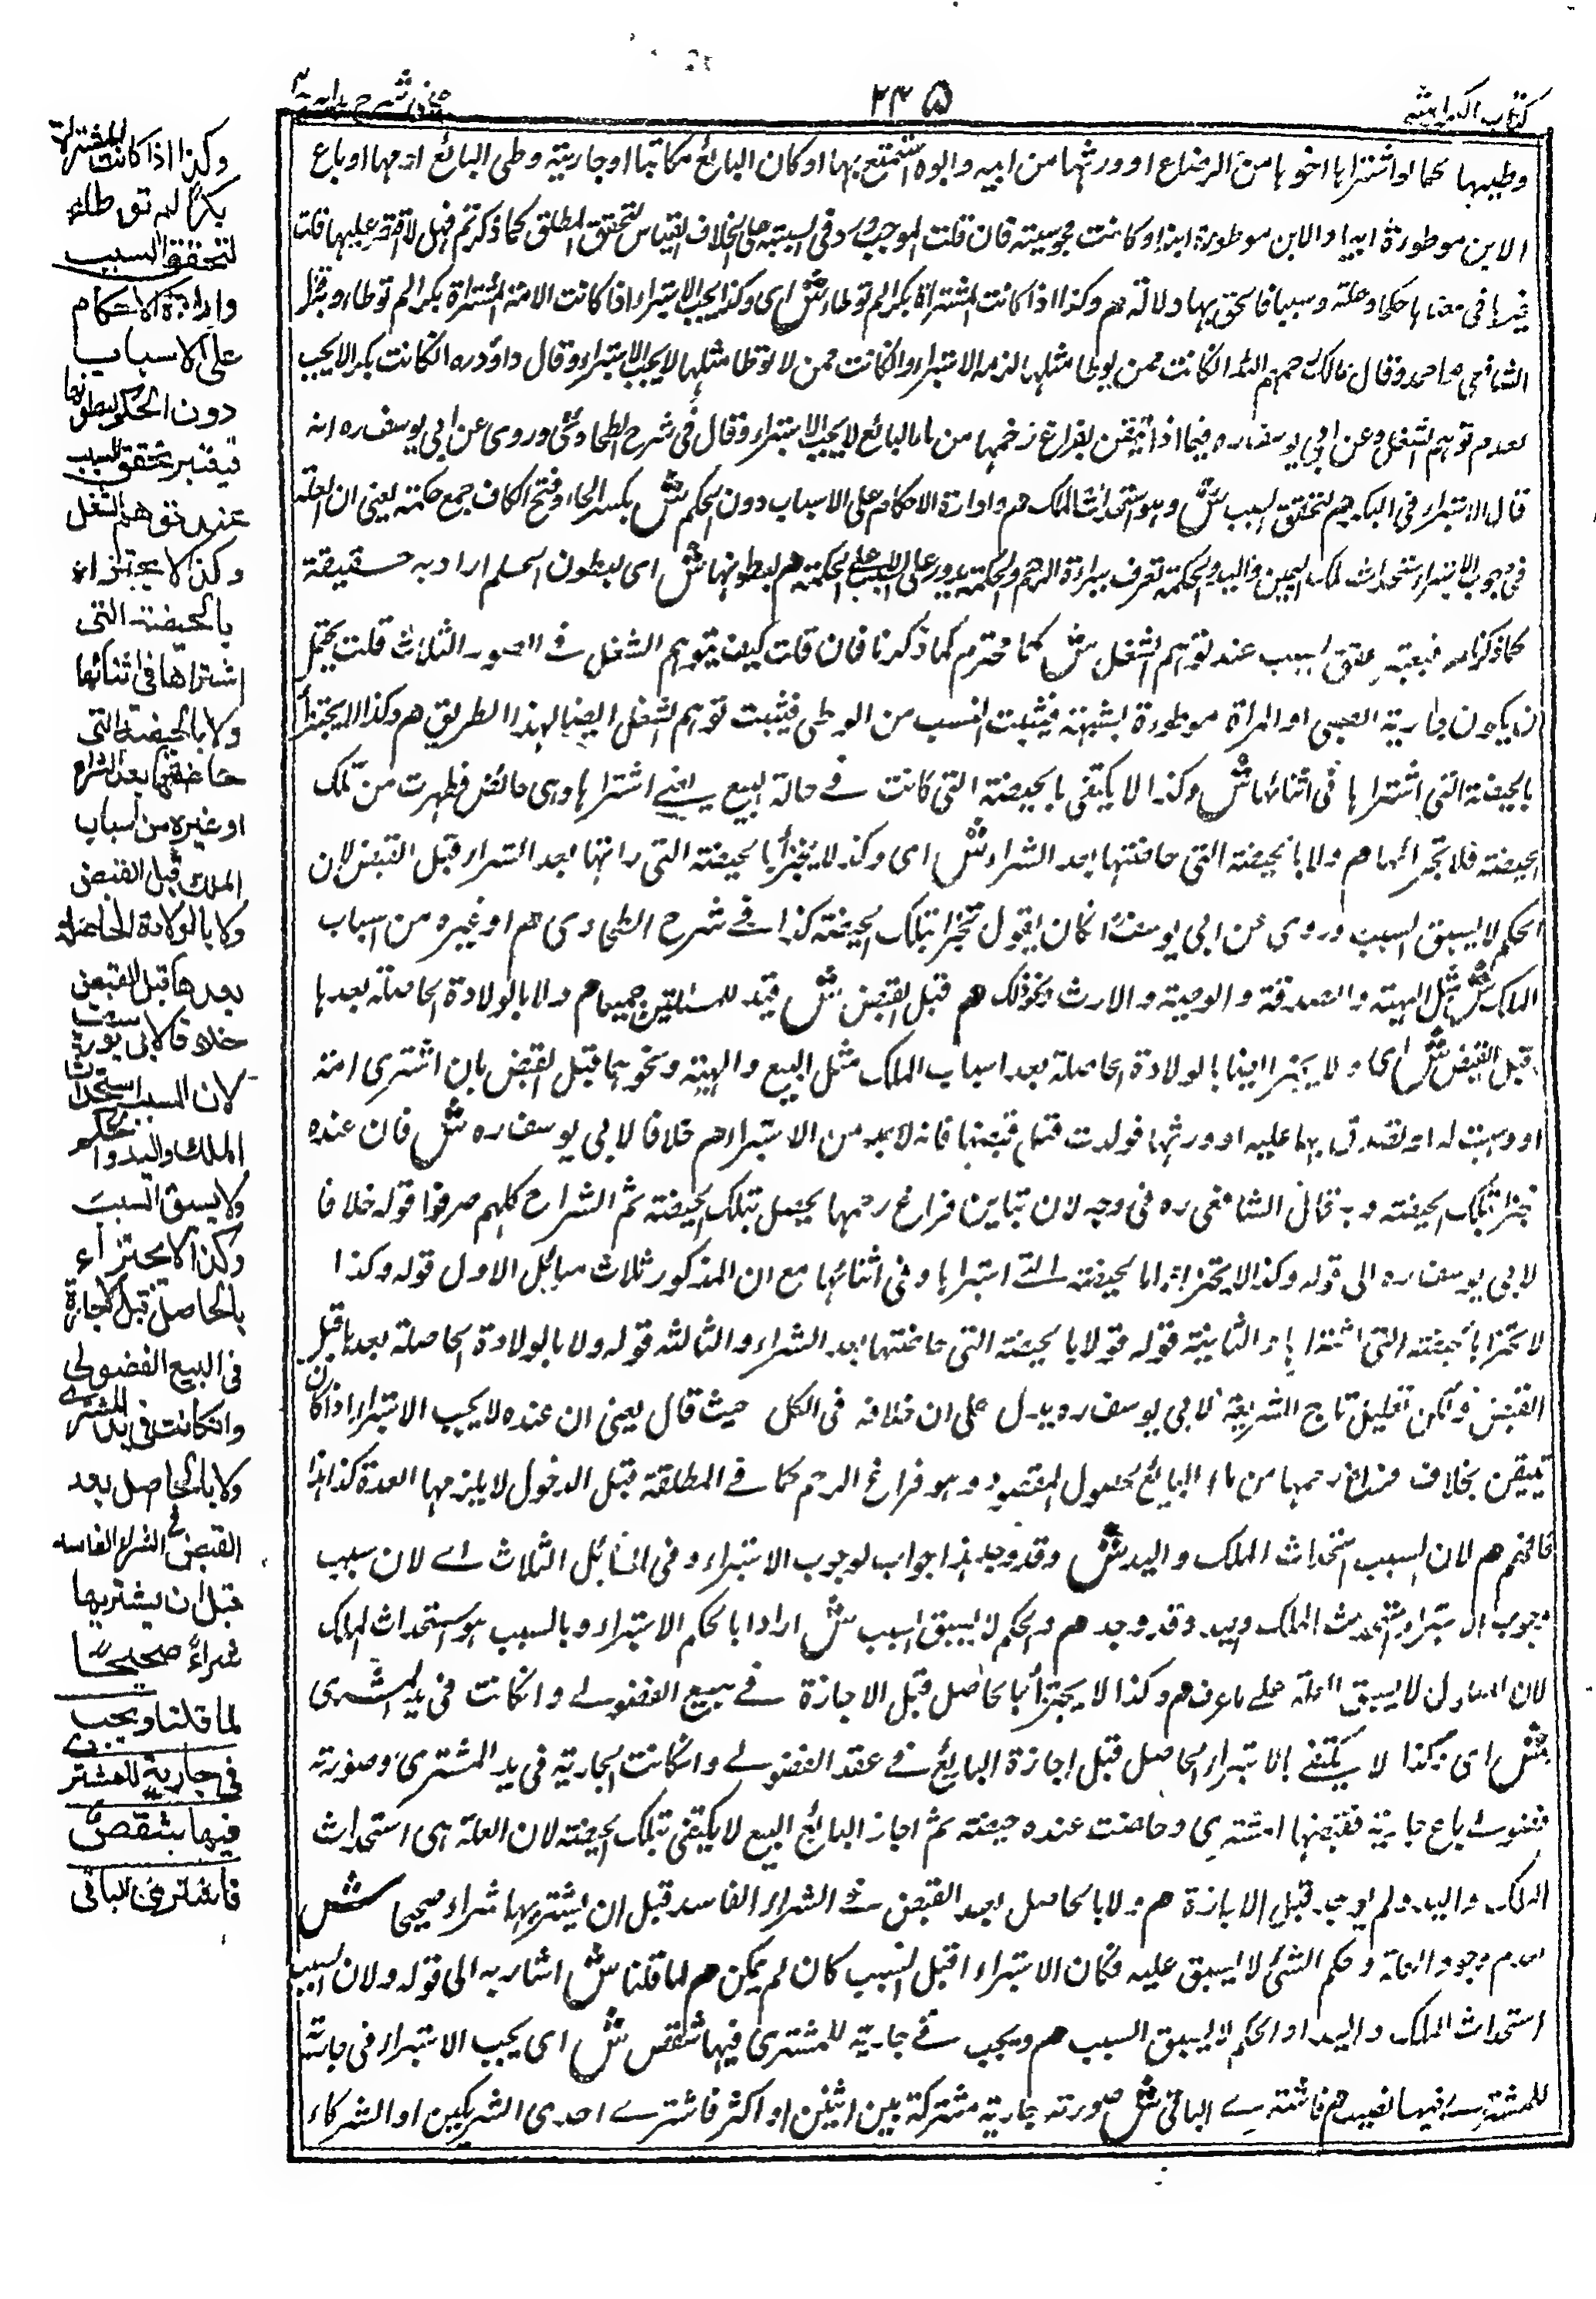 كتاب الكراهية
٢٣٥
عيني شرح هداية
وطيها كما لو اشتراها اخوها من الرضاع او ورثها من ابيه وابوه استمتع بها او كان البائع مكاتبا او جاريته وطى البائع امها او باع
الابن موطورة ابيه او الابن موطورة ابنه او كانت مجوسيته فان قلت الموجب ورد فى السبيته على خلاف القياس لتحقق المطلق كما ذكرتم فهل لا اقتصر عليها قلت
غيرها فى معناها حكما وعلته وسببا فالحق بها دلالة هم وكذا اذا كانت المشتراة بكرا لم توطا ش اى وكذا يجب الاستبراء اذا كانت الامة المشتراة بكرا لم توطا وبه قال
الشافعي واحمد وقال مالك رحمهم الله ان كانت ممن يوطا مثلها لزمه الاستبراء وان كانت ممن لا توطا مثلها لا يجب الاستبراء وقال داؤد ره ان كانت بكرا لا يجب
لعدم توهم الشغل وعن ابي يوسف ره فيما اذا تيقن بفراغ رحمها من ماء البائع لا يجب الاستبراء وقال فى شرح الطحاوي وروى عن ابي يوسف ره انه
قال الاستبراء فى البكر هم لتحقق السبب ش وهو استحداث الملك هم وادارة الاحكام على الاسباب دون الحكم ش بكسر الحاء وفتح الكاف جمع حكمته يعنى ان العلة
فى وجوب الاستبراء استحداث ملك اليمين واليد والحكمة تعرف ببراءة الرحم والحكمة يدور على السبب لا على الحكمة هم لبطونها ش اى لبطون الحكم اراد به حقيقة
كما ذكرنا هم فيعتبر تحقق السبب عند توهم الشغل ش كما محترم كما ذكرنا فان قلت كيف يتوهم الشغل فى الصور الثلاث قلت يحتمل
ان يكون جارية الصبى او المراة موطورة بشبهته فيثبت النسب من الوطى فيثبت توهم الشغل ايضا لهذا الطريق هم وكذا لا يجتزأ
بالحيضة التى اشتراها فى اثنائها ش وكذا لا يكتفى بالحيضة التى كانت فى حالة البيع يعنى اشتراها وهى حائض فطهرت من تلك
الحيضته فلا تجزائها هم ولا بالحيضة التى حاضتها بعد الشراء ش اى وكذا لا يجتزأ بالحيضته التى راتها بعد الشراء قبل القبض لان
الحكم لا يسبق السبب وروى عن ابي يوسف انه كان يقول تجتزا بتلك الحيضته كذا فى شرح الطحاوى هم او غيره من اسباب
الملك ش مثل الهبته والصدقة والوصية والارث ونحو ذلك هم قبل القبض ش قيد للمسئلتين جميعا هم ولا بالولادة الحاصلة بعدها
قبل القبض ش اى ولا يجتزا ايضا بالولادة الحاصلة بعد اسباب الملك مثل البيع والهبته ونحوهما قبل القبض بان اشترى امته
او وهبت له او تصدق بها عليه او ورثها فولدت قبل قبضها فانه لا بد من الاستبراء هم خلافا لابي يوسف ره ش فان عنده
تجتزا بتلك الحيضته وبه قال الشافعي ره فى وجه لان تباين فراغ رحمها يحصل بتلك الحيضته ثم الشراح كلهم صرفوا قوله خلافا
لابي يوسف ره الى قوله وكذا لا يجتزا بالحيضته التى اشتراها فى اثنائها مع ان المذكور ثلاث مسائل الاول قوله وكذا
لا يجتزا بالحيضته التى اشتراها والثانية قوله ولا بالحيضته التى حاضتها بعد الشراء والثالثه قوله ولا بالولادة الحاصلة بعدها قبل
القبض ولكن تعليل تاج الشريعة لابي يوسف ره يدل على ان خلافه فى الكل حيث قال يعنى ان عنده لا يجب الاستبراء اذا كان
تيقن بخلاف فراغ رحمها من ماء البائع لحصول المقصود وهو فراغ الرحم كما فى المطلقة قبل الدخول لا يلزمها العدة كذا هذا
فافهم هم لان السبب استحداث الملك واليد ش وقد وجد هذا جواب لوجوب الاستبراء فى المسائل الثلاث اى لان سبب
وجوب الاستبراء استحداث الملك واليد وقد وجد هم والحكم لا يسبق السبب ش اراد بالحكم الاستبراء وبالسبب هو استحداث الملك
لان المعلول لا يسبق العلة على ما عرف هم وكذا لا يجتزأ بالحاصل قبل الاجازة فى بيع الفضولى وان كانت فى يد المشترى
ش اى وكذا لا يكتفى بالاستبراء الحاصل قبل اجازة البائع فى عقد الفضولى وان كانت الجارية فى يد المشترى وصورته
فضولى باع جارية فقبضها المشترى وحاضت عنده حيضته ثم اجاز البائع البيع لا يكتفى بتلك الحيضته لان العلة هى استحداث
الملك واليد ولم يوجد قبل الاجازة هم ولا بالحاصل بعد القبض فى الشراء الفاسد قبل ان يشتريها شراء صحيحا ش
لعدم وجود العلة وحكم الشئ لا يسبق عليه فكان الاستبراء قبل السبب كان لم يكن هم لما قلنا ش اشار به الى قوله ولان السبب
استحداث الملك واليد والحكم لا يسبق السبب هم ويجب فى جارية للمشترى فيها شقص ش اى يجب الاستبراء فى جارية
للمشترى فيها نصيب هم فاشترى الباقى ش صورته جارية مشتركة بين اثنين او اكثر فاشترى احدى الشريكين او الشركاء
وكذا اذا كانت المشتراة
بكرا لم توطا
لتحقق السبب
وادارة الاحكام
على الاسباب
دون الحكم لبطونها
فيعتبر تحقق السبب
عند توهم الشغل
وكذا لا يجتزاء
بالحيضة التى
اشتراها فى اثنائها
ولا بالحيضة التى
حاضتها بعد الشراء
او غيره من اسباب
الملك قبل القبض
ولا بالولادة الحاصلة
بعدها قبل القبض
خلافا لابي يوسف
لان السبب استحداث
الملك واليد والحكم
لا يسبق السبب
وكذا لا يجتزاء
بالحاصل قبل الاجازة
فى البيع الفضولى
وان كانت فى يد المشترى
ولا بالحاصل بعد
القبض فى الشراء الفاسد
قبل ان يشتريها
شراءً صحيحا
لما قلنا ويجب
فى جارية للمشترى
فيها شقص
فاشترى الباقى